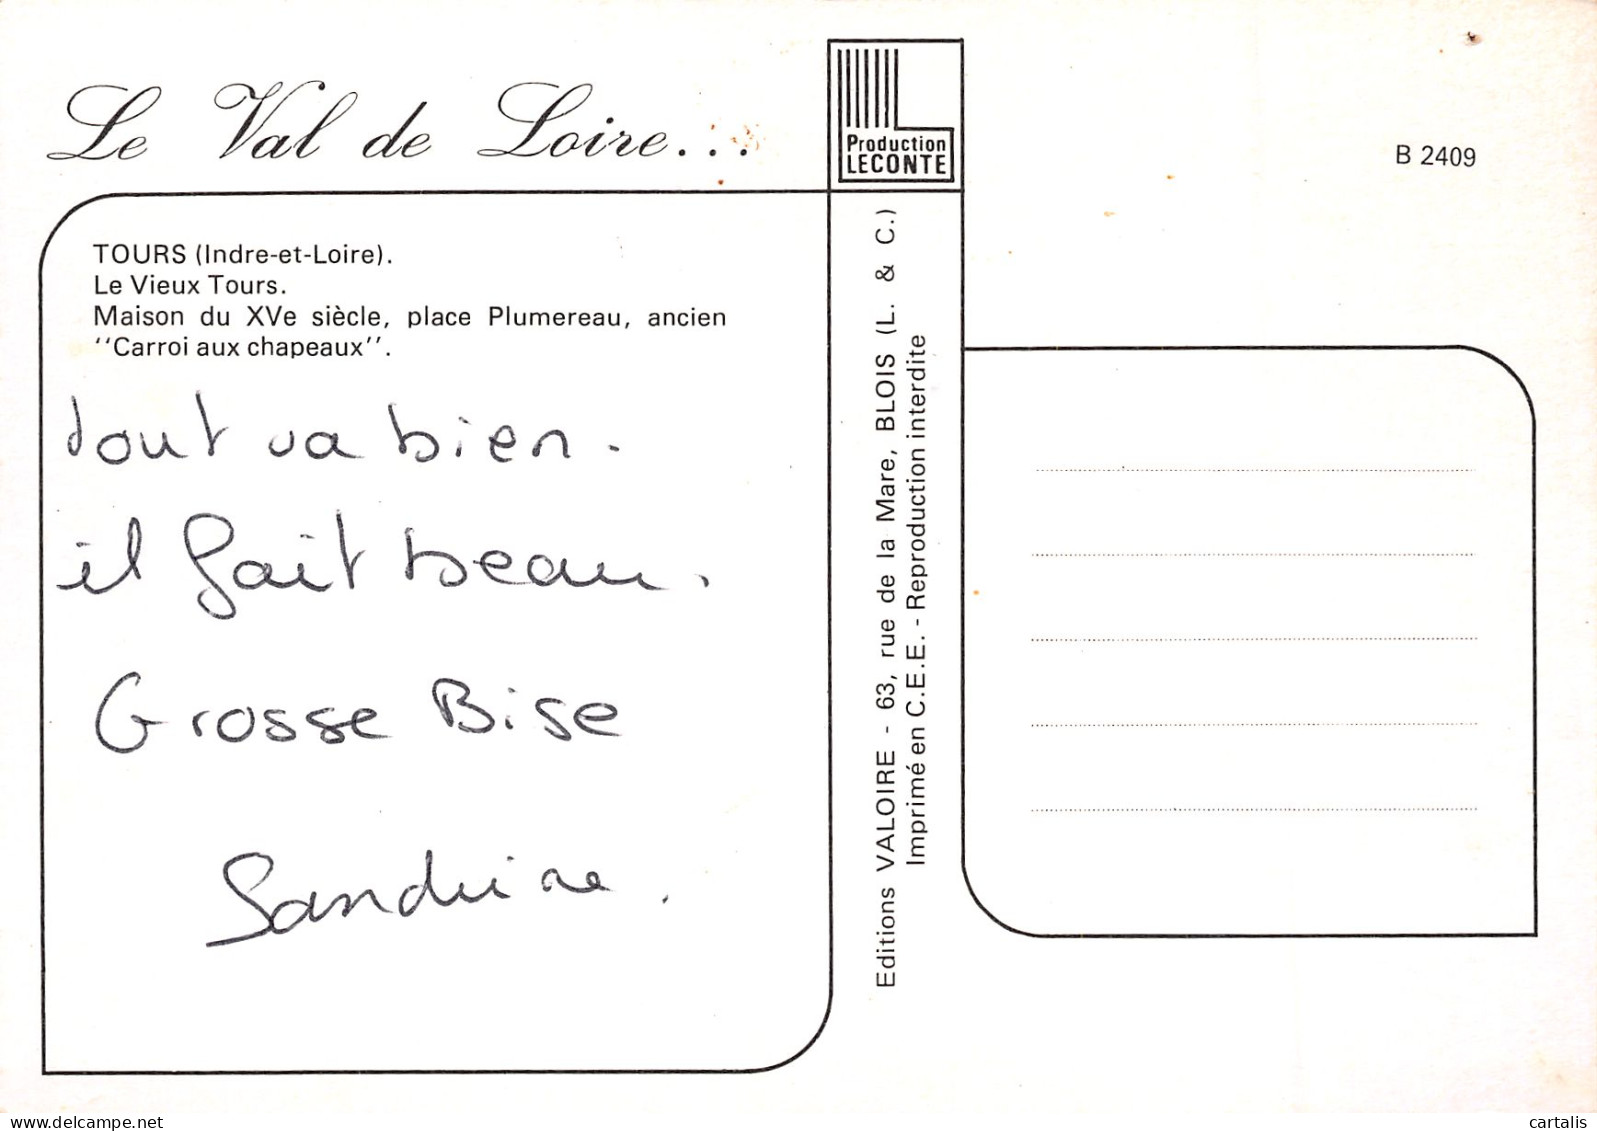 Le Val de Loire...
Production
LECONTE
B 2409
TOURS (Indre-et-Loire).
Le Vieux Tours.
Maison du XVe siècle, place Plumereau, ancien
''Carroi aux chapeaux''.
tout va bien.
il fait beau.
Grosse Bise
Sandrine.
Editions VALOIRE - 63, rue de la Mare, BLOIS (L. & C.)
Imprimé en C.E.E. - Reproduction interdite
cartalis